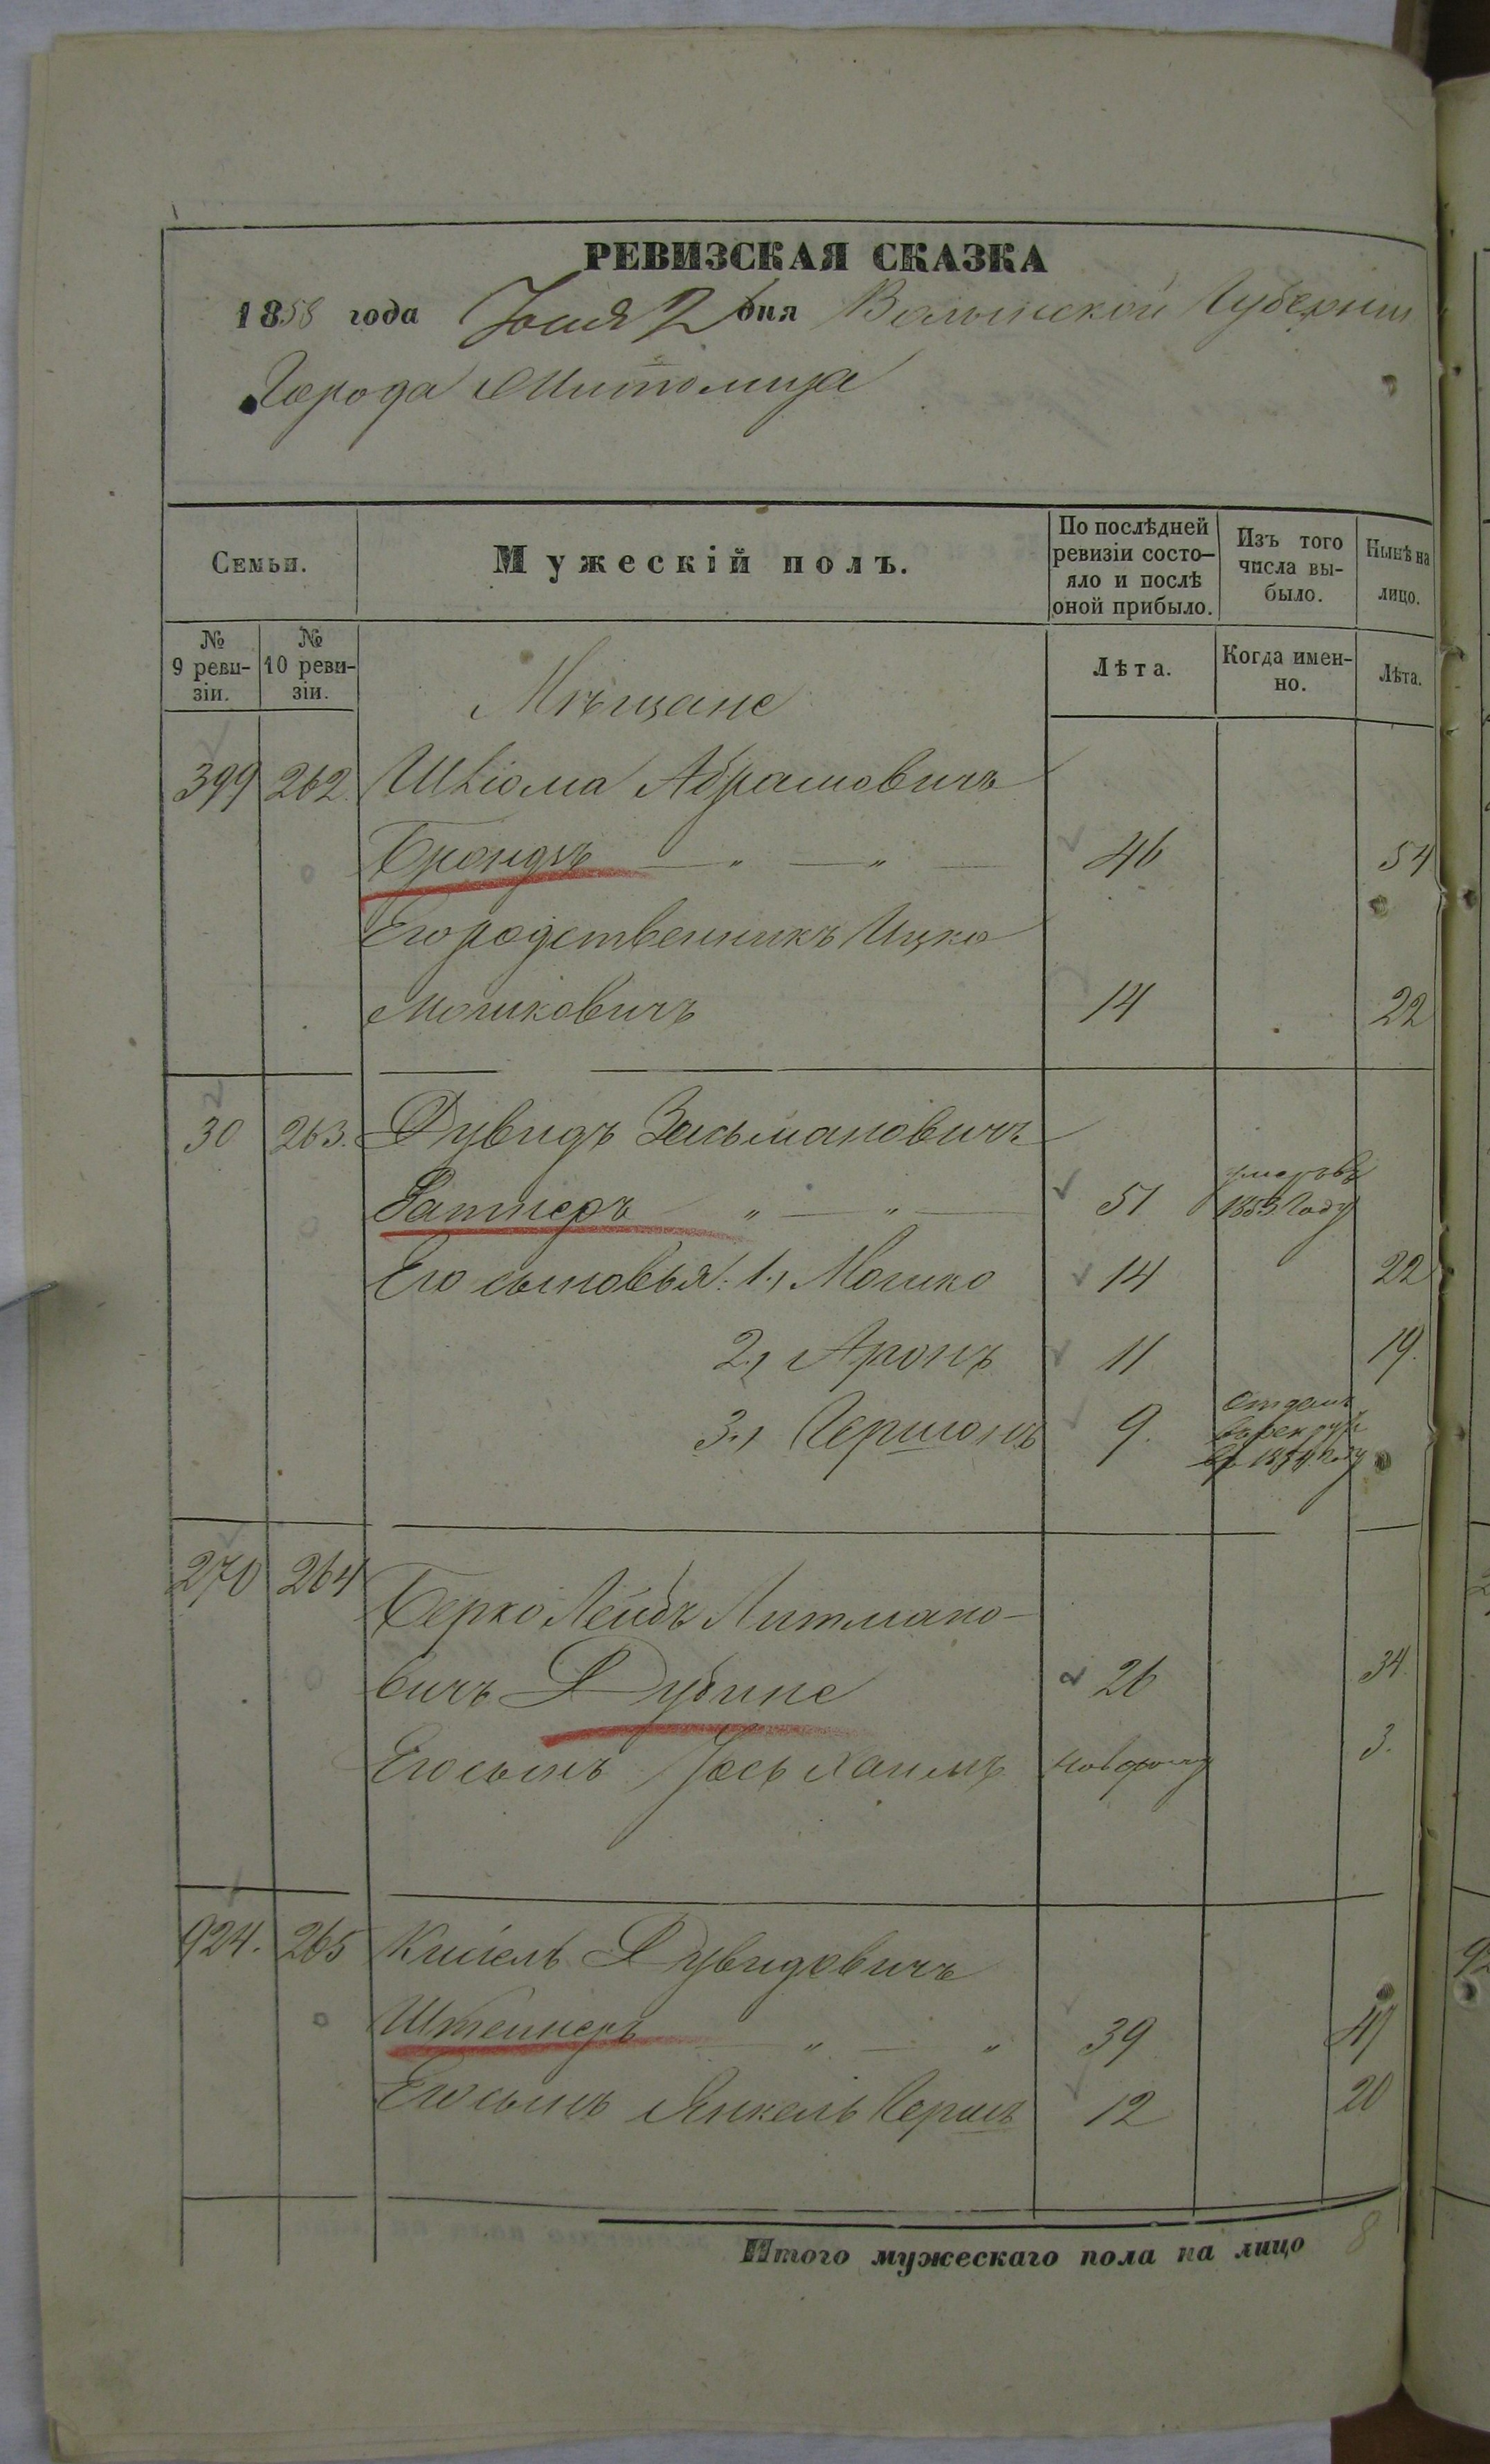 РЕВИЗСКАЯ СКАЗКА
1858 года Іюня 2 дня Волынской Губерніи
Города Житомира
Семьи.
Мужескій полъ.
По послѣдней ревизіи состо-
яло и послѣ оной прибыло.
Изъ того числа вы-
было.
Нынѣ на лицо.
№ 9 реви-
зіи.
№ 10 реви-
зіи.
Лѣта.
Когда имен-
но.
Лѣта.
Мѣщане
399 262. Шліома Абрамовичъ
Брондзъ — " — " — 46 54
Его родственникъ Ицко
Мошковичъ 14 22
30 263. Дувидъ Зельмановичъ
Ратнеръ " — " — 51 умеръ въ 1853 Году
Его сыновья: 1., Мошко 14 22
2., Аронъ 11 19.
3., Гершонъ 9. Отданъ
въ рекруты
въ 1854 Году
270 264 Берко Лейбъ Литмано-
вичъ Дубине 26 34.
Его сынъ Іось Хаимъ новорожд 3.
924. 265 Кисель Дувидовичъ
Штейнеръ — " — " 39 47
Его сынъ Янкель Гершъ 12 20
Итого мужескаго пола на лицо 8